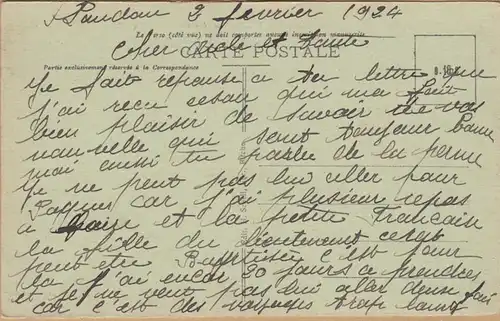 2 fevrier 1924
Le verso (côté vue) ne doit comporter aucune inscription manuscrite
cher oncle et tante
CARTE POSTALE
Partie exclusivement réservée à la Correspondance
Je fait reponse a ta lettre que
j'ai recu cesoir qui ma fait
bien plaisir de savoir de vos
nouvelle qui sont toujour bonne
moi aussi tu parle de la perme
Je ne peut pas lui aller pour
Paques car j'ai plusieur repas
a faire et la petite Francaise
la fille du lieutenant cesera
peut etre Baptisée c'est pour
la j'ai encor 20 jours a prendre
et je ne veut pas lui aller deux foi
car c'est des voyages trop